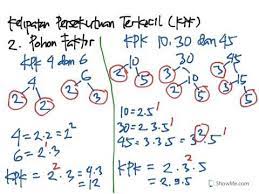 Kelipatan Persekutuan Terkecil (KPK)
2. Pohon Faktor
KPK 4 dan 6
4 6
2 2 2 3
4 = 2.2 = 2²
6 = 2¹.3
KPK = 2².3 = 4.3
= 12
KPK 10, 30 dan 45
10 30 45
2 5 2 15 3 15
3 5 3 5
10 = 2.5¹
30 = 2.3.5¹
45 = 3.3.5 = 3².5¹
KPK = 2.3².5
ShowMe.com